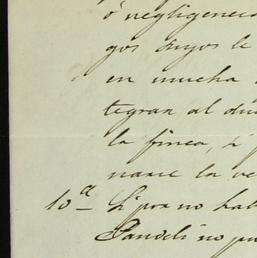 ó negligencia
gos suyos le
en mucha
tegran al du
la finca, si
narme la ve
10ª Si por no hal
no pu